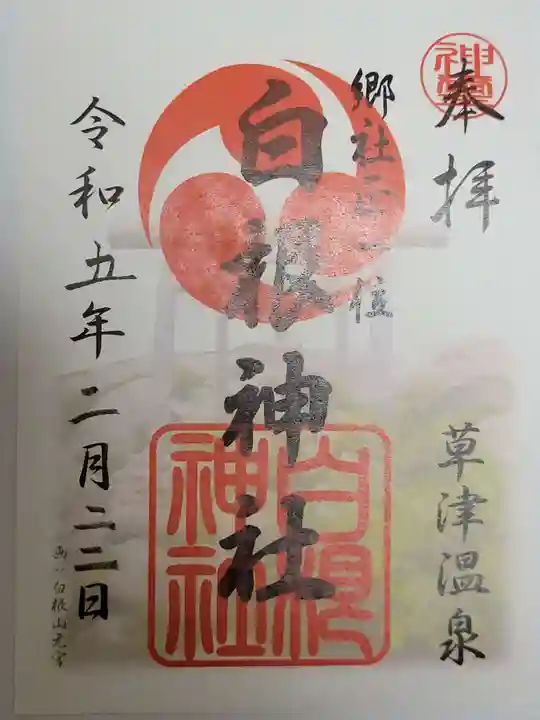 奉拝
草津温泉
郷社正一位
白根神社
白根神社
令和五年二月二二日
白根山元宮